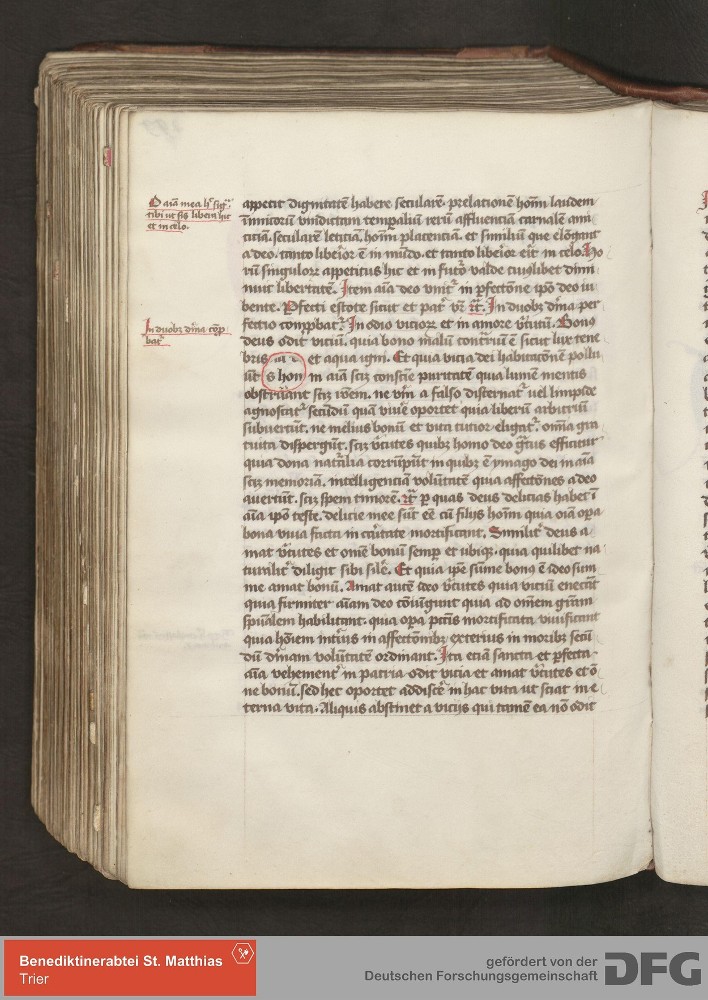 O aīa mea hͨ sig᷒
tibi ut sis libera hic
et in celo.
In duob᷒ dīna ꝑfc̄o
bat᷒
appetit dignitatē habere secularē. prelationē hoīm laudem
inimicorū vindictam tempaliū rerū affluenciā carnalē ami
ticiā. secularē leticiā. hoīm placenciā. et similiū que elōgant
a deo. tanto liberior ē in mūdo. et tanto liberior erit in celo. Ho
rū singulorꝝ appetitus hic et in futo valde cuiuslibet dimi
nuit libertatē. Item aīa deo unit᷒ in ꝑfectōne ipō deo iu
bente. Perfecti estote sicut et pat᷒ vr̄ ꝛc̄. In duob᷒ dīna per
fectio comp̄bat᷒. In odio vicioꝝ et in amore vtutū. Bonꝰ
deus odit viciū. quia bono malū contriū ē sicut lux tene
bris et aqua igni. Et quia vicia dei habitacōnē pollu
ūt s hom in aīam scꝫ conscīe puritatē quia lumē mentis
obstruant scꝫ rōem. ne vm̄ a falso discernat᷒ vel limpide
agnoscat᷒ secūdū quā viuē oportet quia liberū arbitriū
subuertūt. ne melius bonū et vita tutior eligat᷒. om̄ia gra
tuita dispergut. scꝫ vtutes quibꝫ homo deo gtus efficitur
quia dona natalia corrūpūt in quibꝫ ē ymago dei in aīa
scꝫ memoriam. intelligenciā volūtatē quia affectōnes a deo
auertūt. scꝫ spem timorē. ꝛc̄ ꝑ quas deus delicias habet ī
aīa ipō teste. delicie mee sūt eē cū filijs hoīm quia oīa opa
bona viua facta in caritate mortificant. Similit᷒ deus a
mat vtutes et om̄e bonū semꝑ et ubiqꝫ. quia quilibet na
turalit᷒ diligit sibi sile. Et quia ipē sūme bonꝰ ē ideo sum
me amat bonū. Amat autē deo vtutes quia viciū enecāt
quia firmiter aīam deo cōiūngunt quia ad om̄em grām
spūalem habilitant. quia opa pctīs mortificata viuificant
quia hoīem intius in affectōnibꝫ exterius in moribꝫ secū
dū dīnam volūtatē ordinant. Ita eciā sancta et ꝑfecta
aīa vehement᷒ in patria odit vicia et amat vtutes et ō
ne bonū. sed hec oportet addisce in hac vita ut sciat in e
terna vita. Aliquis abstinet a vicijs qui tamē ea nō odit
Benediktinerabtei St. Matthias
Trier
gefördert von der
Deutschen Forschungsgemeinschaft
DFG